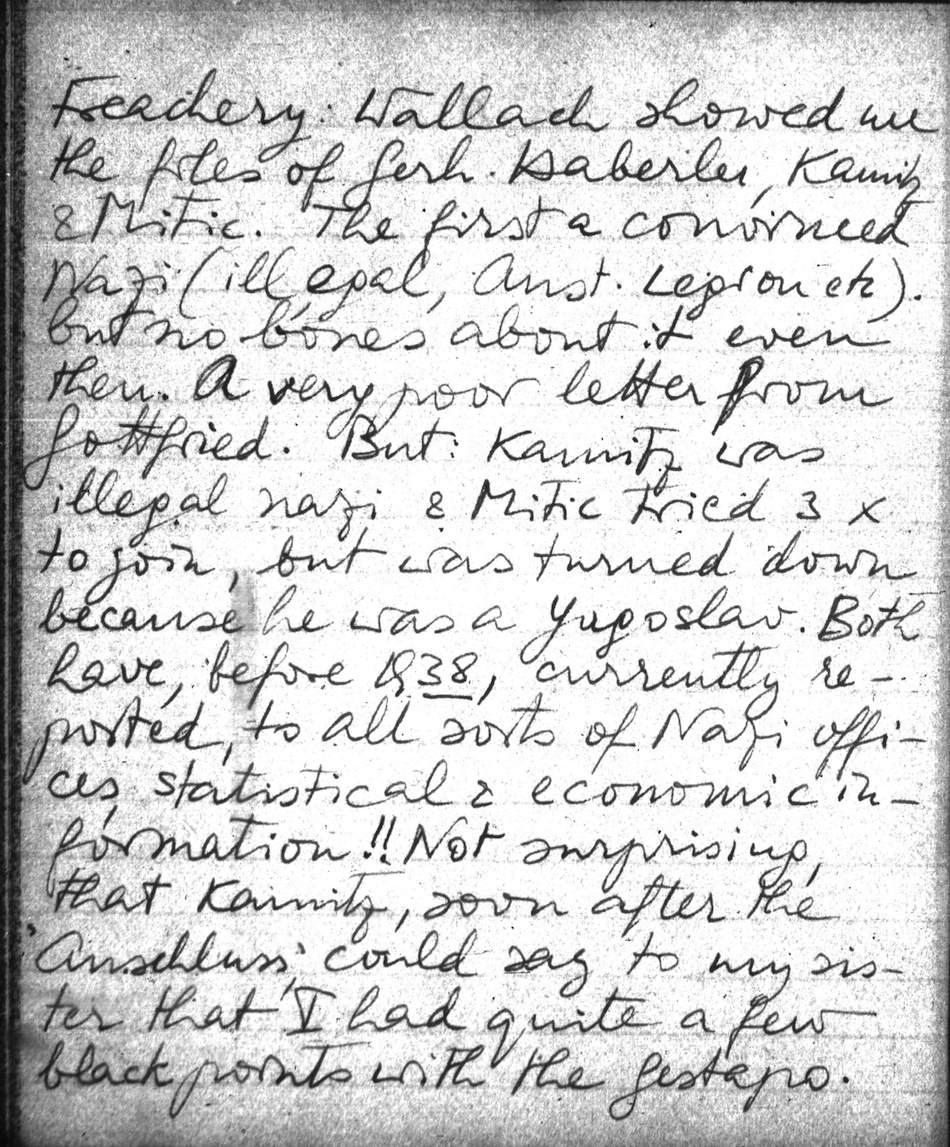 Treachery: Wallach showed me
the files of Gerh. Haberler, Kamitz
& Mitic. The first a convinced
Nazi (illegal, Aust. Legion etc).
but no bones about it even
then. A very poor letter from
Gottfried. But: Kamitz was
illegal nazi & Mitic tried 3 x
to join, but was turned down
because he was a Yugoslav. Both
have, before 1938, currently re-
ported, to all sorts of Nazi offi-
ces, statistical & economic in-
formation!! Not surprising,
that Kamitz, soon after the
'Anschluss' could say to my sis-
ter that I had quite a few
black points with the Gestapo.